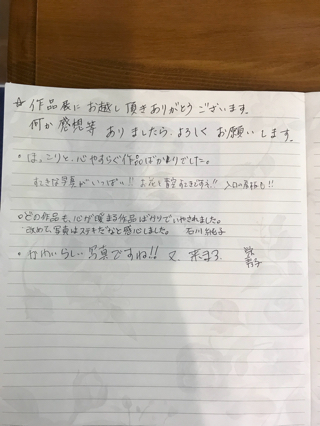 ☆ 作品展にお越し頂きありがとうございます。
何か感想等ありましたら、よろしくお願いします。
・ほっこりと、心やすらぐ作品ばかりでした。
すてきな写真がいっぱい!! お花と青空もすてきです!! 入口の看板も!!
○どの作品も、心が暖まる作品ばかりでいやされました。
改めて、写真はステキだなと感心しました。 石川
・かわいらしい写真ですね!! 又、来ます。